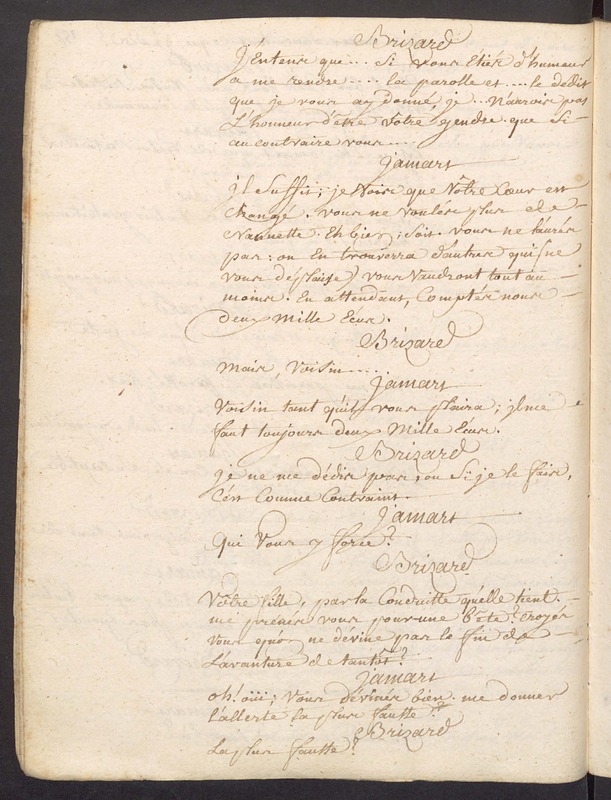 Brizard
J'Entens que.... Si vous Etiés d'humeur
a me rendre .... la parolle et .... le dédit
que je vous ay donné, je ... Naurois pas
L'honneur d'être votre gendre. que Si
au contraire vous....
Jamars
jl Suffit; je Vois que Vôtre Coeur est
changé. vous ne voulés plus de
Nannette. Eh bien; Soit. vous ne L'aurés
pas: on En trouverra d'autres qui (ne
vous déplaise) vous Vaudront tout au
moins. En attendant, Comptés nous
deux Mille Ecus.
Brizard
Mais, Voisin....
Jamars
Voisin tant qu'il vous plaira; jl me
faut toujours deux Mille Ecus.
Brizard
je ne me dédis pas, ou Si je le fais,
C'est Comme Contraint.
Jamars
Qui Vous y force?
Brizard
Vôtre fille, par la Conduitte qu'elle tient.
me prenés vous pour une bête? croyés
vous qu'on ne dévine pas le fin de
L'avanture de tantôt?
Jamars
oh! oüi; Vous dévinés bien. me donner
l'allerte la plus fausse!
Brizard
La plus fausse?